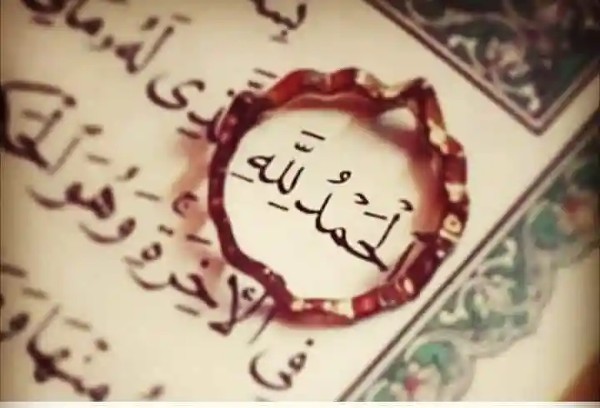 الْحَمْدُ لِلَّهِ الَّذِى لَهُ مَا فِى
فِى الْأَخِرَةِ وَهُوَ الْحَكِ
مِنْهَا وَمَ